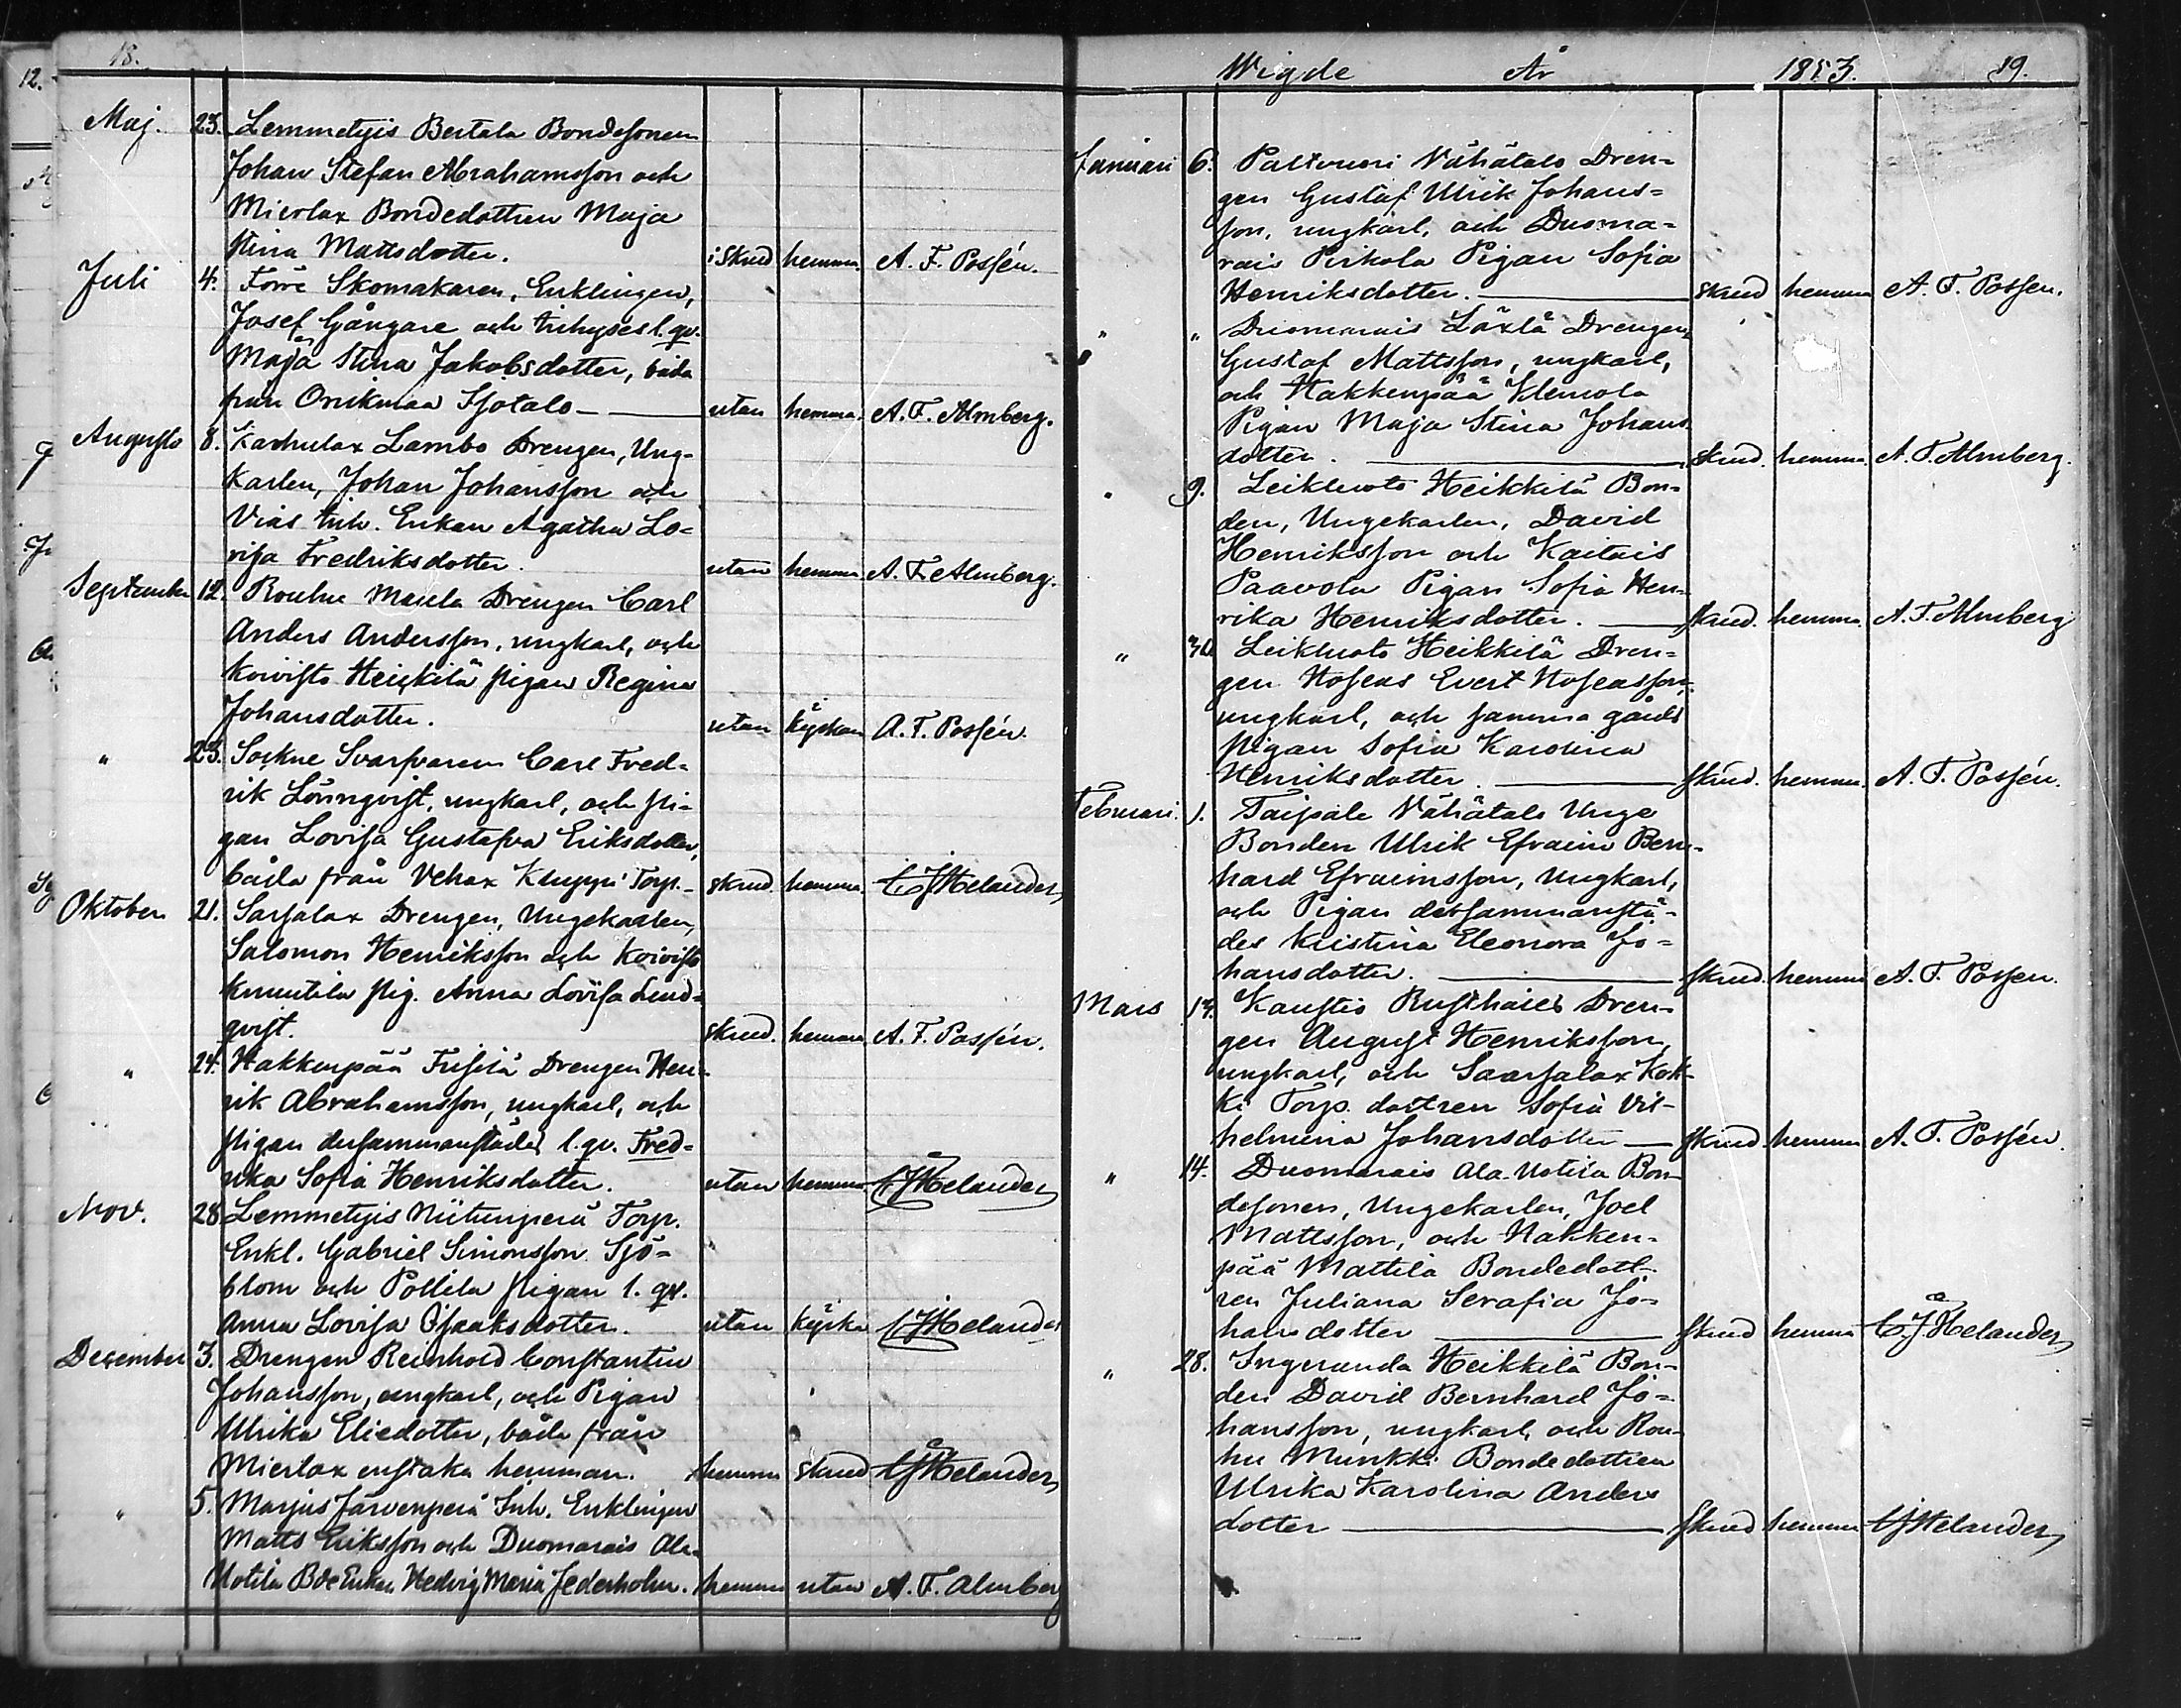 18.
Maj. 23. Lemmetyis Bertala Bondesonen
Johan Stefan Abrahamsson och
Mierlax Bondedottren Maja
Stina Mattsdotter. i skrud hemma. A. F. Possén.
Juli 4. Förre Skomakaren, Enklingen,
Josef Gångare och inhyses l. qv.
Maja Stina Jakobsdotter, båda
från Orikmaa Isotalo — utan hemma. A. F. Almberg.
Augusto 8. Kaehulax Lambo Drengen, Ung-
karlen, Johan Johansson och
Vias inh. Enkan Agatha Lo-
visa Fredriksdotter. utan hemma A. F. Almberg.
September 12. Rouhu Maula Drengen Carl
Anders Andersson, ungkarl, och
Koivisto Heickilä pigan Regina
Johansdotter. utan kyrkan A. F. Possén.
" 23. Sockne Svarfvaren Carl Fred-
rik Lönnqvist, ungkarl, och pi-
gan Lovisa Gustafva Eriksdotter,
båda från Vehax Kluppi Torp. — skrud. hemma. C J Helander
Oktober 21. Sarsalax Drengen, Ungekarlen,
Salomon Henriksson och Koivisto
Knuutila pig. Anna Lovisa Lind-
qvist. skrud. hemma A. F. Possén.
" 24. Hakkenpää Fusilä Drengen Hen-
rik Abrahamsson, ungkarl, och
pigan dersammanstädes l. qv. Fred-
rika Sofia Henriksdotter. utan hemma C J Helander
Nov. 28. Lemmetyis Niitunperä Torp.
Enkl. Gabriel Simonsson Sjö-
blom och Pollila pigan l. qv.
Anna Lovisa Isaaksdotter. utan kyrka C J Helander
December 3. Drengen Reinhold Constantin
Johansson, ungkarl, och Pigan
Ulrika Eliedotter, båda från
Mierlax enstaka hemman. hemma skrud C J Helander
" 5. Marjus Järvenperä Inh. Enklingen
Matts Eriksson och Duomarais Ala-
Uotila Bde Enkan Hedvig Maria Jederholm. hemma utan A. F. Almberg
Wigde År 1853. 19.
Januari 6. Paltvuori Vähätalo Dren-
gen Gustaf Ulrik Johans-
son, ungkarl, och Duoma-
rais Pirkola Pigan Sofia
Henriksdotter. — skrud hemma A. F. Possen.
" " Duomarais Laxlå Drengen
Gustaf Mattsson, ungkarl,
och Hakkenpää Klemola
Pigan Maja Stina Johans
dotter. — skrud. hemma. A. F. Almberg.
" 9. Leikluoto Heikkilä Bon-
den, Ungekarlen, David
Henriksson och Kaitais
Paavola Pigan Sofia Hen-
rika Henriksdotter. — skrud. hemma. A. F. Almberg
" 30. Leikluoto Heikkilä Dren-
gen Hoseas Evert Hoseasson,
ungkarl, och samma gårds
Pigan Sofia Karolina
Henriksdotter. — skrud. hemma. A. F. Possén.
Februari. 1. Taipale Vähätalo Unge
Bonden Ulrik Efraim Bern-
hard Efraimsson, Ungkarl,
och Pigan dersammanstä-
des Kristina Eleonora Jo-
hansdotter. — skrud. hemma A. F. Possen.
Mars 13. Kaustio Rusthålls Dren-
gen August Henriksson,
ungkarl, och Saarsalax Kok-
ki Torp. dottren Sofia Vil-
helmina Johansdotter — skrud hemma A. F. Possén.
" 14. Duomarais Ala-Uotila Bon-
desonen, Ungekarlen, Joel
Mattsson, och Hakken-
pää Mattila Bondedott-
ren Juliana Serafia Jo-
hansdotter — skrud hemma C. J. Helander
" 28. Ingeranda Heikkilä Bon-
den David Bernhard Jo-
hansson, ungkarl, och Rou-
hu Munkki Bondedottren
Ulrika Karolina Anders
dotter — skrud hemma C J Helander